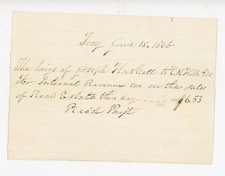 Troy June 15, 1866
The heirs of Joseph Haskell to
For Internal Revenue on the sales
of Real Estate this day $6.53
Rec'd Pay't